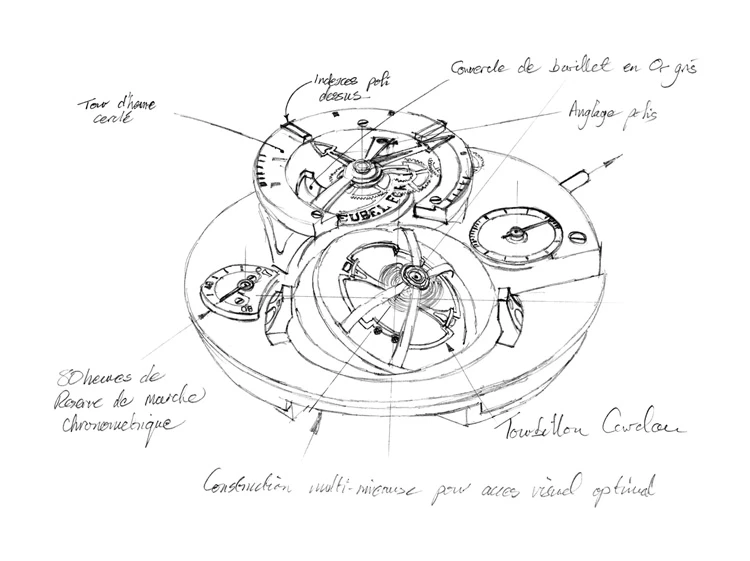 Couvercle de barillet en Or gris
Indexes poli
dessus
Tour d'heure
cerclé
Anglage polis
FUBEL FOR
80
80 heures de
Réserve de marche
chronométrique
Tourbillon Cardan
Construction multi-niveaux pour accès visuel optimal